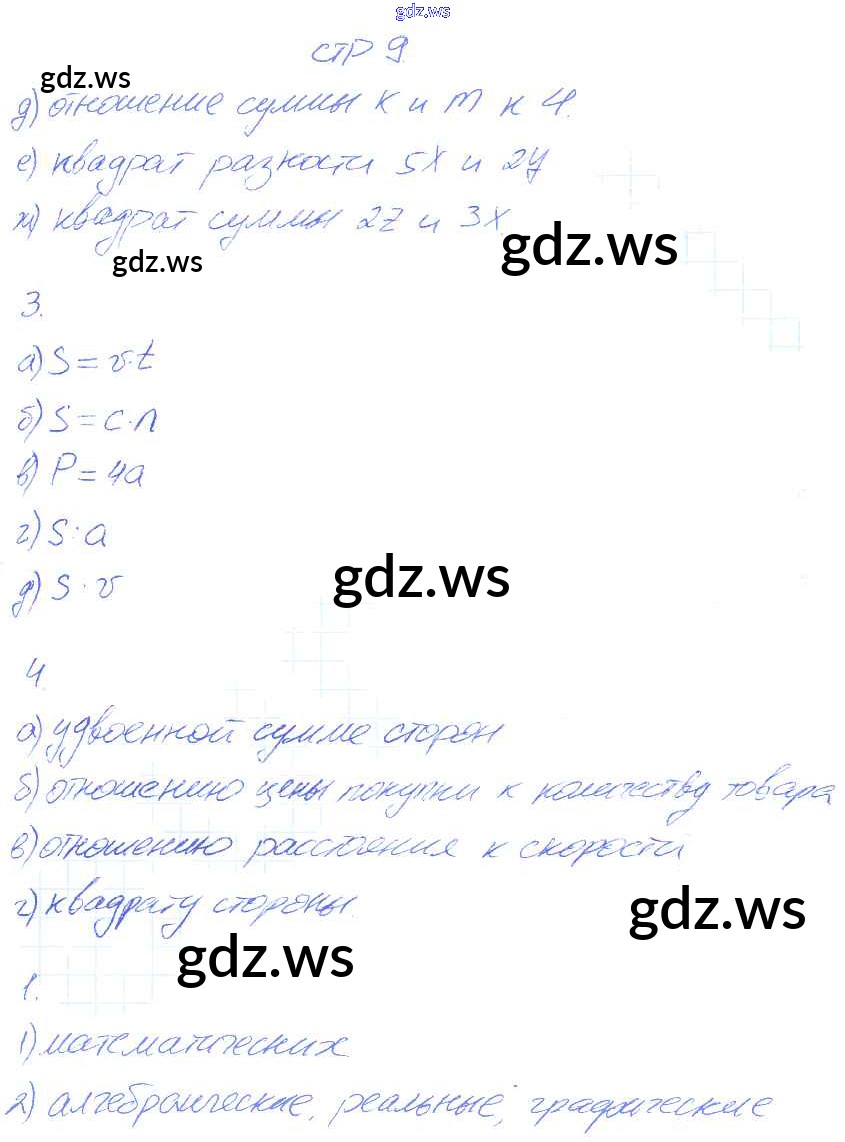 gdz.ws
стр 9.
gdz.ws
д) отношение суммы k и m к 4.
е) квадрат разности 5x и 2y
ж) квадрат суммы 2z и 3x.
gdz.ws
gdz.ws
3.
а) S = v·t
б) S = c·n
в) P = 4a
г) S : a
д) S · v
gdz.ws
4.
а) удвоенной сумме сторон
б) отношению цены покупки к количеству товара
в) отношению расстояния к скорости
г) квадрату стороны.
gdz.ws
gdz.ws
1.
1) математических
2) алгебраические, реальные, графические